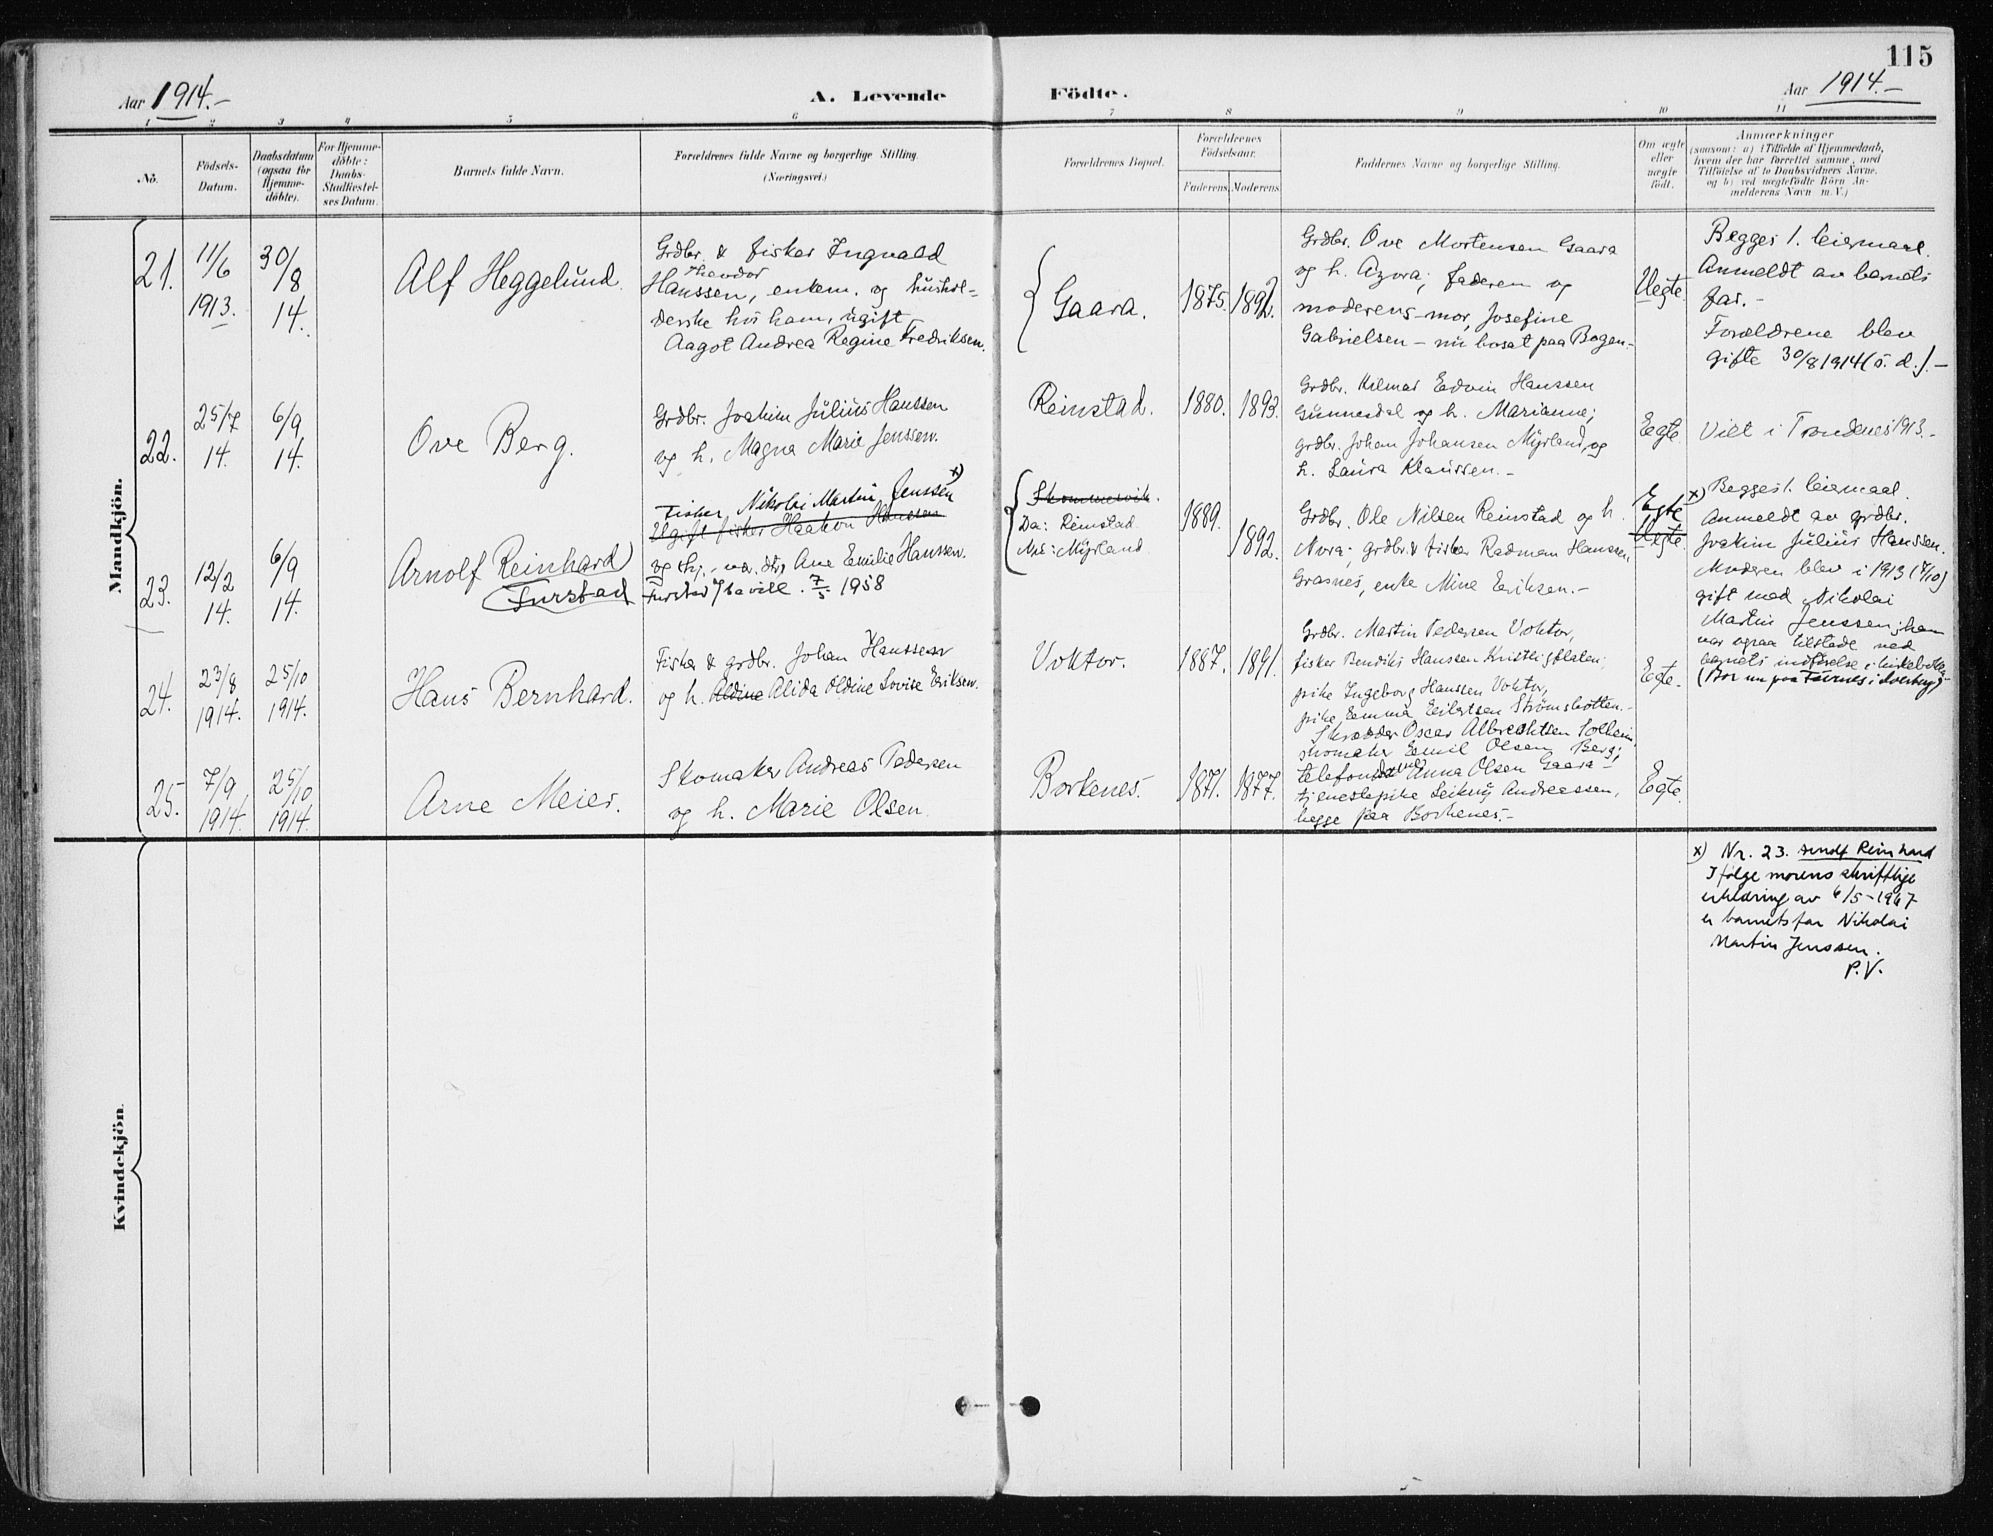 115
Aar 1914.-
A. Levende Födte.
Aar 1914.-
1 2 3 4 5 6 7 8 9 10 11
No.
Födsels-
Datum.
Daabsdatum
(ogsaa for
Hjemme-
döbte).
For Hjemme-
döbte:
Daabs-
Stadfæstel-
ses Datum.
Barnets fulde Navn.
Forældrenes fulde Navne og borgerlige Stilling.
(Næringsvei.)
Forældrenes Bopæl.
Forældrenes
Födselsaar.
Faderens. Moderens.
Faddernes Navne og borgerlige Stilling.
Om ægte
eller
uægte
födt.
Anmærkninger
(saasom: a) i Tilfælde af Hjemmedaab,
hvem der har forrettet samme, med
Tilföielse af to Daabsvidners Navne.
og b) ved uægtefödte Börn An-
melderens Navn m. V.)
Mandkjön.
21.
11/6
1913.
30/8
14.
Alf Heggelund.
Grdbr. & fisker Ingvald
Theodor
Hanssen, enkem. og hushol-
derske hos ham, ugift
Aagot Andrea Regine Fredriksen.
Gaara.
1875. 1892.
Grdbr. Ove Mortensen Gaara
og h. Azora; faderen og
moderens mor, Josefine
Gabrielsen - nu bosat paa Bogen.-
Uegte.
Begges 1. leiermaal.
Anmeldt av barnets
far.-
Forældrene blev
gifte 30/8 1914 (s. d.).-
22.
25/7
14.
6/9
14.
Ove Berg.
Grdbr. Joakim Julius Hanssen
og h. Magna Marie Jenssen.
Reinstad.
1880. 1893.
Grdbr. Hilmar Edvin Hanssen
Gunnesdal og h. Marianne;
grdbr. Johan Johansen Myrland og
h. Laura Klaussen.-
Egte.
Viet i Trondenes 1913.-
23.
12/2
14.
6/9
14.
Arnolf Reinhard
Furstad
Fisker Nikolai Martin Jenssen x)
Ugift fisker Haakon Hanssen
og tj.-væ. dtr. Ane Emilie Hanssen.
Furstad 7/5 1958
Da: Reinstad.
Mrs: Myrland.
1889.
1892.
Grdbr. Ole Nilsen Reinstad og h.
Nora; grdbr. & fisker Radman Hanssen
Grasnes, enke Mine Eriksen.-
Egte
Uegte.
x) Begges 1. leiermaal.
Anmeldt av grdbr.
Joakim Julius Hanssen.
Moderen blev i 1913 (7/10)
gift med Nikolai
Martin Jenssen; han
var ogsaa tilstede ved
barnets indførelse i kirkeboken.
24.
23/8
1914.
25/10
1914.
Hans Bernhard.
Fisker & grdbr. Johan Hanssen
og h. Aldine Alida Oldine Lovise Eriksen.
Voktor.
1887. 1891.
Grdbr. Martin Pedersen Voktor,
fisker Bendiks Hanssen Kristligflaten;
pike Ingeborg Hanssen Voktor,
pike Emma Eilertsen Strømsbotten.-
Egte.-
25.
7/9
1914.
25/10
1914.
Arne Meier.
Skomaker Andreas Pedersen
og h. Marie Olsen.
Borkenes.
1871. 1877.
Skrædder Oscar Albrechtsen Solheim
skomaker Emil Olsen Berg;
Anna Olsen Gaara-
tjenestepike Andreassen,
begge paa Borkenes.-
Egte.
Kvindekjön.
x) Nr. 23. Arnolf Reinhard
Ifølge morens skriftlige
erklæring av 6/5-1967
er barnets far Nikolai
Martin Jenssen.
P.V.